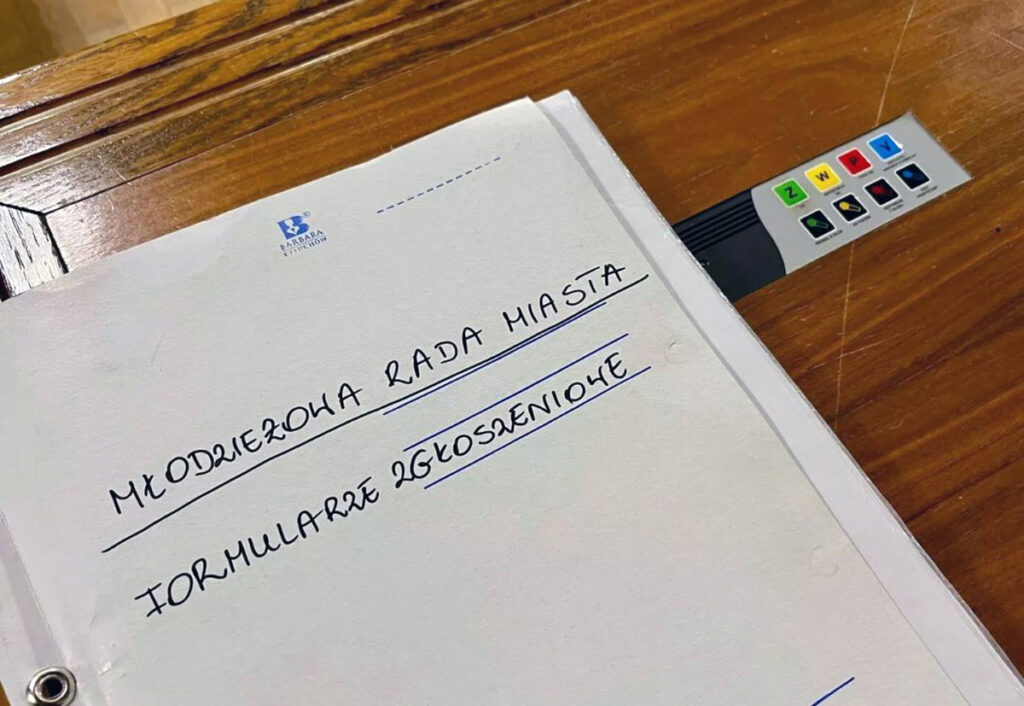 B®
BARBARA
CZŁUCHÓW
MŁODZIEŻOWA RADA MIASTA
FORMULARZE ZGŁOSZENIOWE
Z W P V